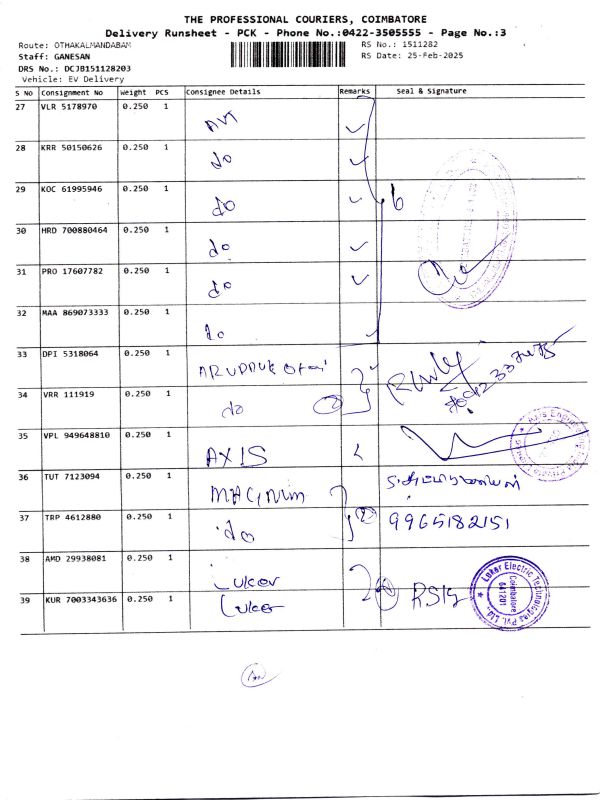 THE PROFESSIONAL COURIERS, COIMBATORE
Delivery Runsheet - PCK - Phone No.:0422-3505555 - Page No.:3
Route: OTHAKALMANDABAM RS No.: 1511282
Staff: GANESAN RS Date: 25-Feb-2025
DRS No.: DCJB151128203
Vehicle: EV Delivery
S No Consignment No Weight PCS Consignee Details Remarks Seal & Signature
27 VLR 5178970 0.250 1 AVT
28 KRR 50150626 0.250 1 do
29 KOC 61995946 0.250 1 do 6
30 HRD 700880464 0.250 1 do
31 PRO 17607782 0.250 1 do
32 MAA 869073333 0.250 1 do
33 DPI 5318064 0.250 1
34 VRR 111919 0.250 1 do 2
35 VPL 949648810 0.250 1 AXIS
36 TUT 7123094 0.250 1 MAGNUM
37 TRP 4612880 0.250 1 do 2 9965182151
38 AMD 29938081 0.250 1 Luker
39 KUR 7003343636 0.250 1 Luker
Luker Electric Technologies Pvt. Ltd.
Coimbatore
641201